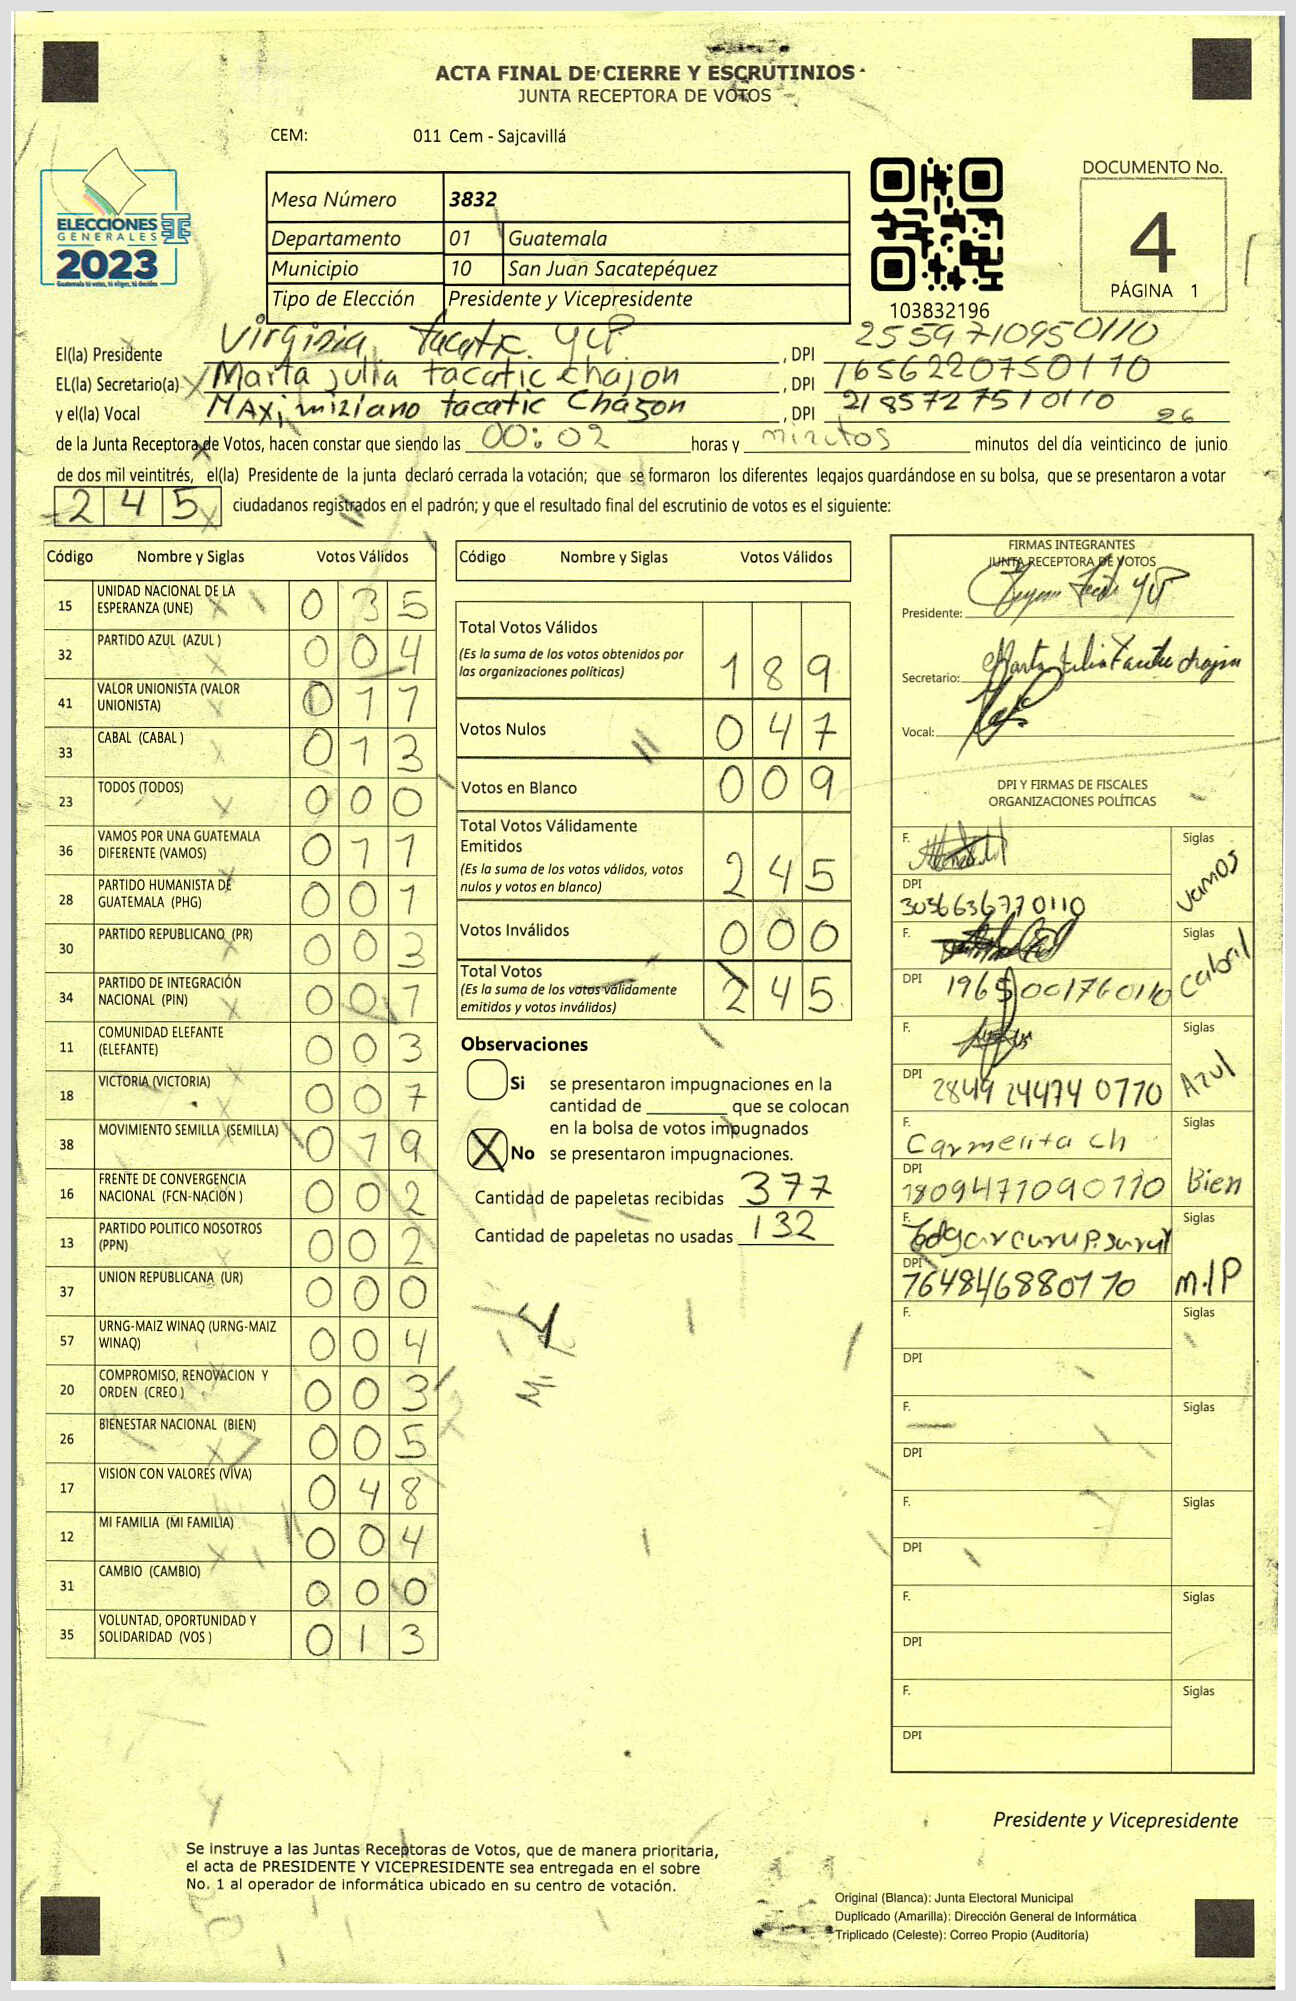 ACTA FINAL DE CIERRE Y ESCRUTINIOS
JUNTA RECEPTORA DE VOTOS
CEM: 011 Cem - Sajcavillá
DOCUMENTO No.
4
PÁGINA 1
ELECCIONES
GENERALES
2023
Guatemala tú votas, tú eliges, tú decides
Mesa Número 3832
Departamento 01 Guatemala
Municipio 10 San Juan Sacatepéquez
Tipo de Elección Presidente y Vicepresidente
103832196
El(la) Presidente Virginia tacatic yup , DPI 2559710950110
EL(la) Secretario(a) Marta julia tacatic chajon , DPI 1656220750110
y el(la) Vocal MAximiziano tacatic Chagon , DPI 2185727510110
26
de la Junta Receptora de Votos, hacen constar que siendo las 00:02 horas y minutos minutos del día veinticinco de junio
de dos mil veintitrés, el(la) Presidente de la junta declaró cerrada la votación; que se formaron los diferentes legajos guardándose en su bolsa, que se presentaron a votar
245 ciudadanos registrados en el padrón; y que el resultado final del escrutinio de votos es el siguiente:
Código Nombre y Siglas Votos Válidos
15 UNIDAD NACIONAL DE LA ESPERANZA (UNE) 035
32 PARTIDO AZUL (AZUL ) 004
41 VALOR UNIONISTA (VALOR UNIONISTA) 011
33 CABAL (CABAL ) 013
23 TODOS (TODOS) 000
36 VAMOS POR UNA GUATEMALA DIFERENTE (VAMOS) 011
28 PARTIDO HUMANISTA DE GUATEMALA (PHG) 001
30 PARTIDO REPUBLICANO (PR) 003
34 PARTIDO DE INTEGRACIÓN NACIONAL (PIN) 001
11 COMUNIDAD ELEFANTE (ELEFANTE) 003
18 VICTORIA (VICTORIA) 007
38 MOVIMIENTO SEMILLA (SEMILLA) 019
16 FRENTE DE CONVERGENCIA NACIONAL (FCN-NACION ) 002
13 PARTIDO POLITICO NOSOTROS (PPN) 002
37 UNION REPUBLICANA (UR) 000
57 URNG-MAIZ WINAQ (URNG-MAIZ WINAQ) 004
20 COMPROMISO, RENOVACION Y ORDEN (CREO ) 003
26 BIENESTAR NACIONAL (BIEN) 005
17 VISION CON VALORES (VIVA) 048
12 MI FAMILIA (MI FAMILIA) 004
31 CAMBIO (CAMBIO) 000
35 VOLUNTAD, OPORTUNIDAD Y SOLIDARIDAD (VOS ) 013
Código Nombre y Siglas Votos Válidos
Total Votos Válidos 189
(Es la suma de los votos obtenidos por
las organizaciones políticas)
Votos Nulos 047
Votos en Blanco 009
Total Votos Válidamente
Emitidos 245
(Es la suma de los votos válidos, votos
nulos y votos en blanco)
Votos Inválidos 000
Total Votos 245
(Es la suma de los votos válidamente
emitidos y votos inválidos)
Observaciones
Si se presentaron impugnaciones en la
cantidad de ________ que se colocan
en la bolsa de votos impugnados
X No se presentaron impugnaciones.
Cantidad de papeletas recibidas 377
Cantidad de papeletas no usadas 132
FIRMAS INTEGRANTES
JUNTA RECEPTORA DE VOTOS
Presidente:
Secretario: Marta Julia Tacatic chajon
Vocal:
DPI Y FIRMAS DE FISCALES
ORGANIZACIONES POLÍTICAS
F. Siglas
DPI 3036636770110 vamos
F. Siglas
DPI 1965001760110 cabril
F. Siglas
DPI 2849244740110 Azul
F. Carmelita ch Siglas
DPI 1809471090110 Bien
F. Siglas
DPI 764846880110 M.I.P
F. Siglas
DPI
F. Siglas
DPI
F. Siglas
DPI
F. Siglas
DPI
F. Siglas
DPI
Presidente y Vicepresidente
Se instruye a las Juntas Receptoras de Votos, que de manera prioritaria,
el acta de PRESIDENTE Y VICEPRESIDENTE sea entregada en el sobre
No. 1 al operador de informática ubicado en su centro de votación.
Original (Blanca): Junta Electoral Municipal
Duplicado (Amarilla): Dirección General de Informática
Triplicado (Celeste): Correo Propio (Auditoría)